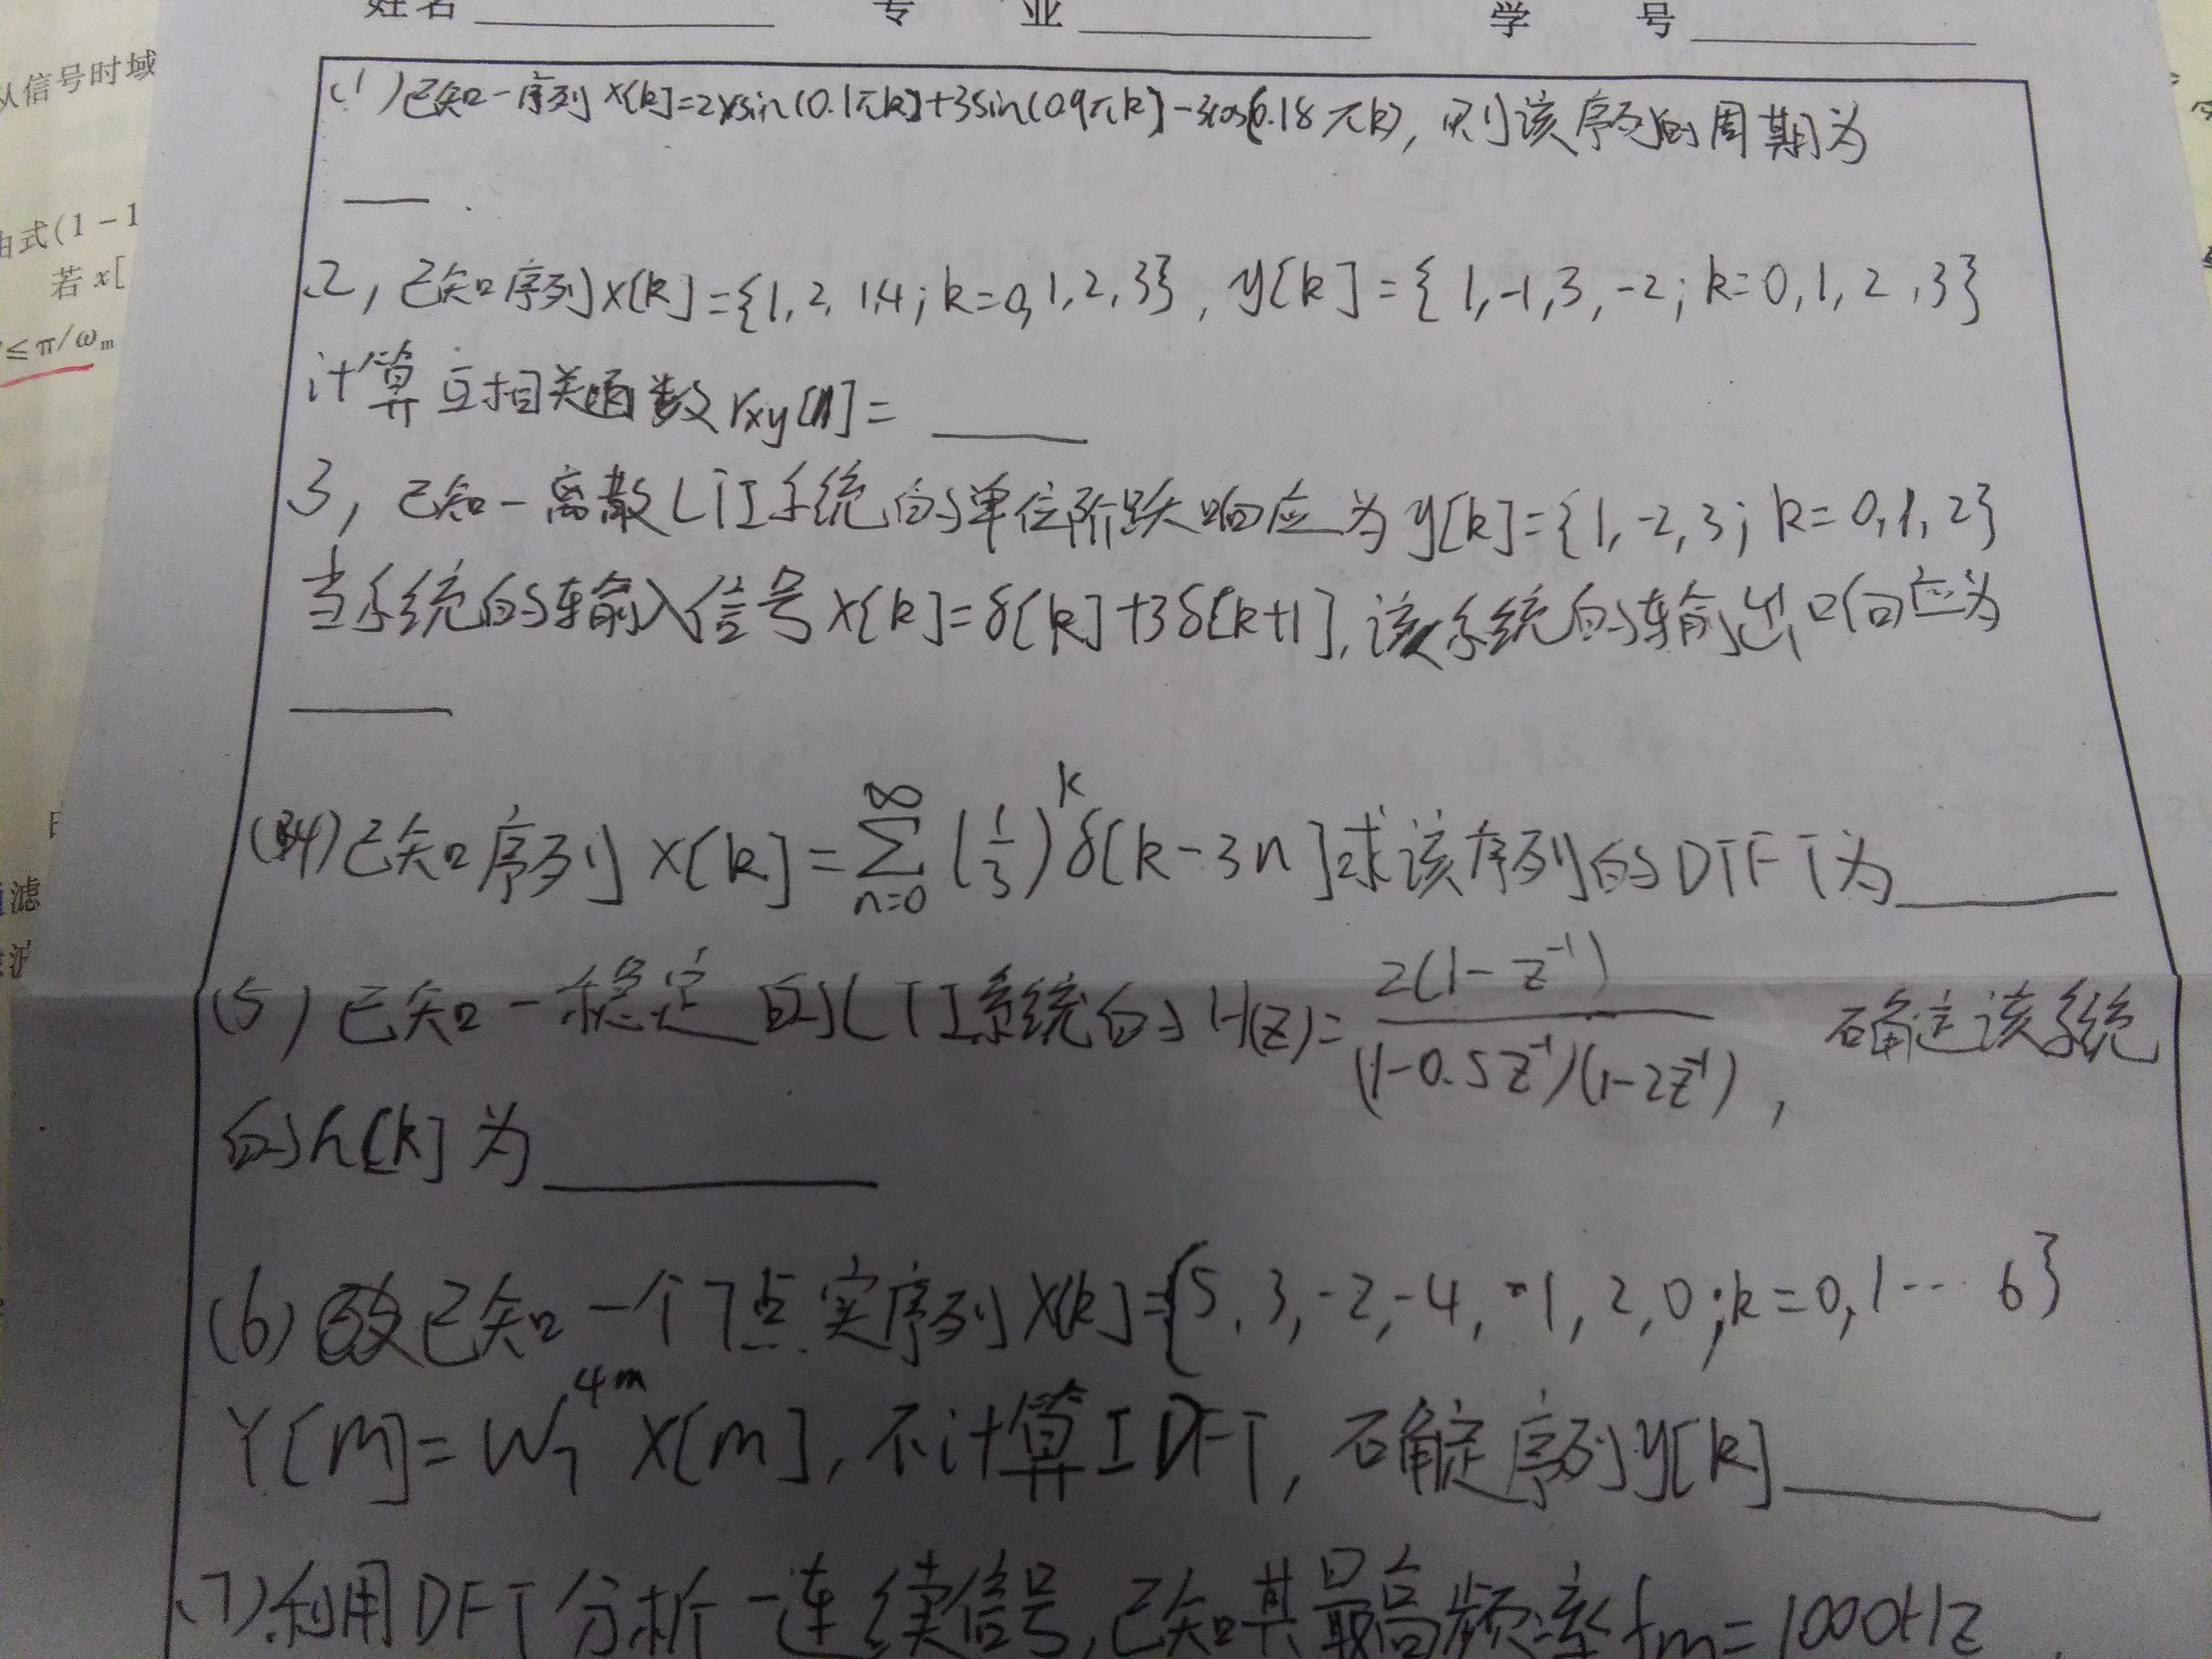 姓名 专 业 学 号
从信号时域
由式(1-1
若 x[
≤π/ωm
滤
(1)已知一序列 x[k]=2sin(0.1πk)+3sin(0.9πk)-3cos(0.18πk), 则该序列的周期为
____.
2, 已知序列x[k]={1,2,1,4; k=0,1,2,3}, y[k]={1,-1,3,-2; k=0,1,2,3}
计算互相关函数rxy[n]=____
3, 已知一离散LTI系统的单位阶跃响应为y[k]={1,-2,3; k=0,1,2}
当系统的输入信号x[k]=δ[k]+3δ[k+1], 该系统的输出响应为
____
(4)已知序列 x[k]=∑_{n=0}^{∞}(1/3)^k δ[k-3n]求该序列的DTFT为____
(5)已知一稳定的LTI系统的H(z)=2(1-z^{-1})/(1-0.5z^{-1})(1-2z^{-1}), 确定该系统
的h[k]为____
(6)已知一个7点实序列x[k]={5,3,-2,-4,-1,2,0;k=0,1…6}
Y[m]=W_7^{4m}X[m], 不计算IDFT, 确定序列y[k]____
(7)利用DFT分析一连续信号,已知其最高频率fm=1000Hz